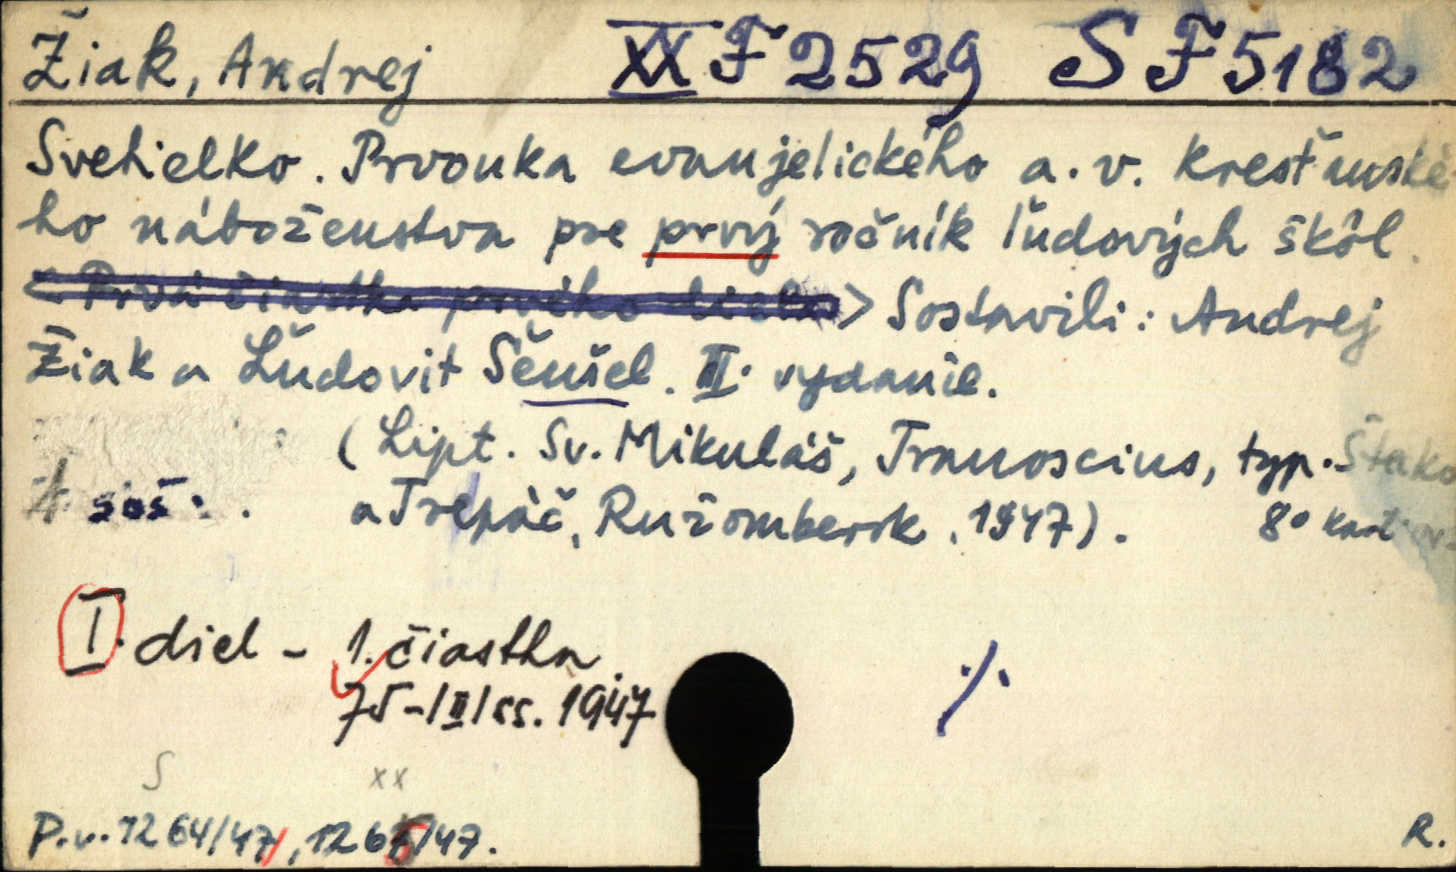 Žiak, Andrej XX F 2529 S F 5182
Svetielko. Prvouka evanjelického a. v. kresťanské-
ho náboženstva pre prvý ročník ľudových škôl.
<Prvá čiastka prvého diela> Sostavili: Andrej
Žiak a Ľudovit Šenšel. II. vydanie.
(Lipt. Sv. Mikuláš, Tranoscius, typ.
4 soš. a Trepáč, Ružomberok, 1947). 8° kart
I. diel - 1. čiastka
75-/II/ss. 1947
S xx
P.v. 1264/47, 1265/47. R.